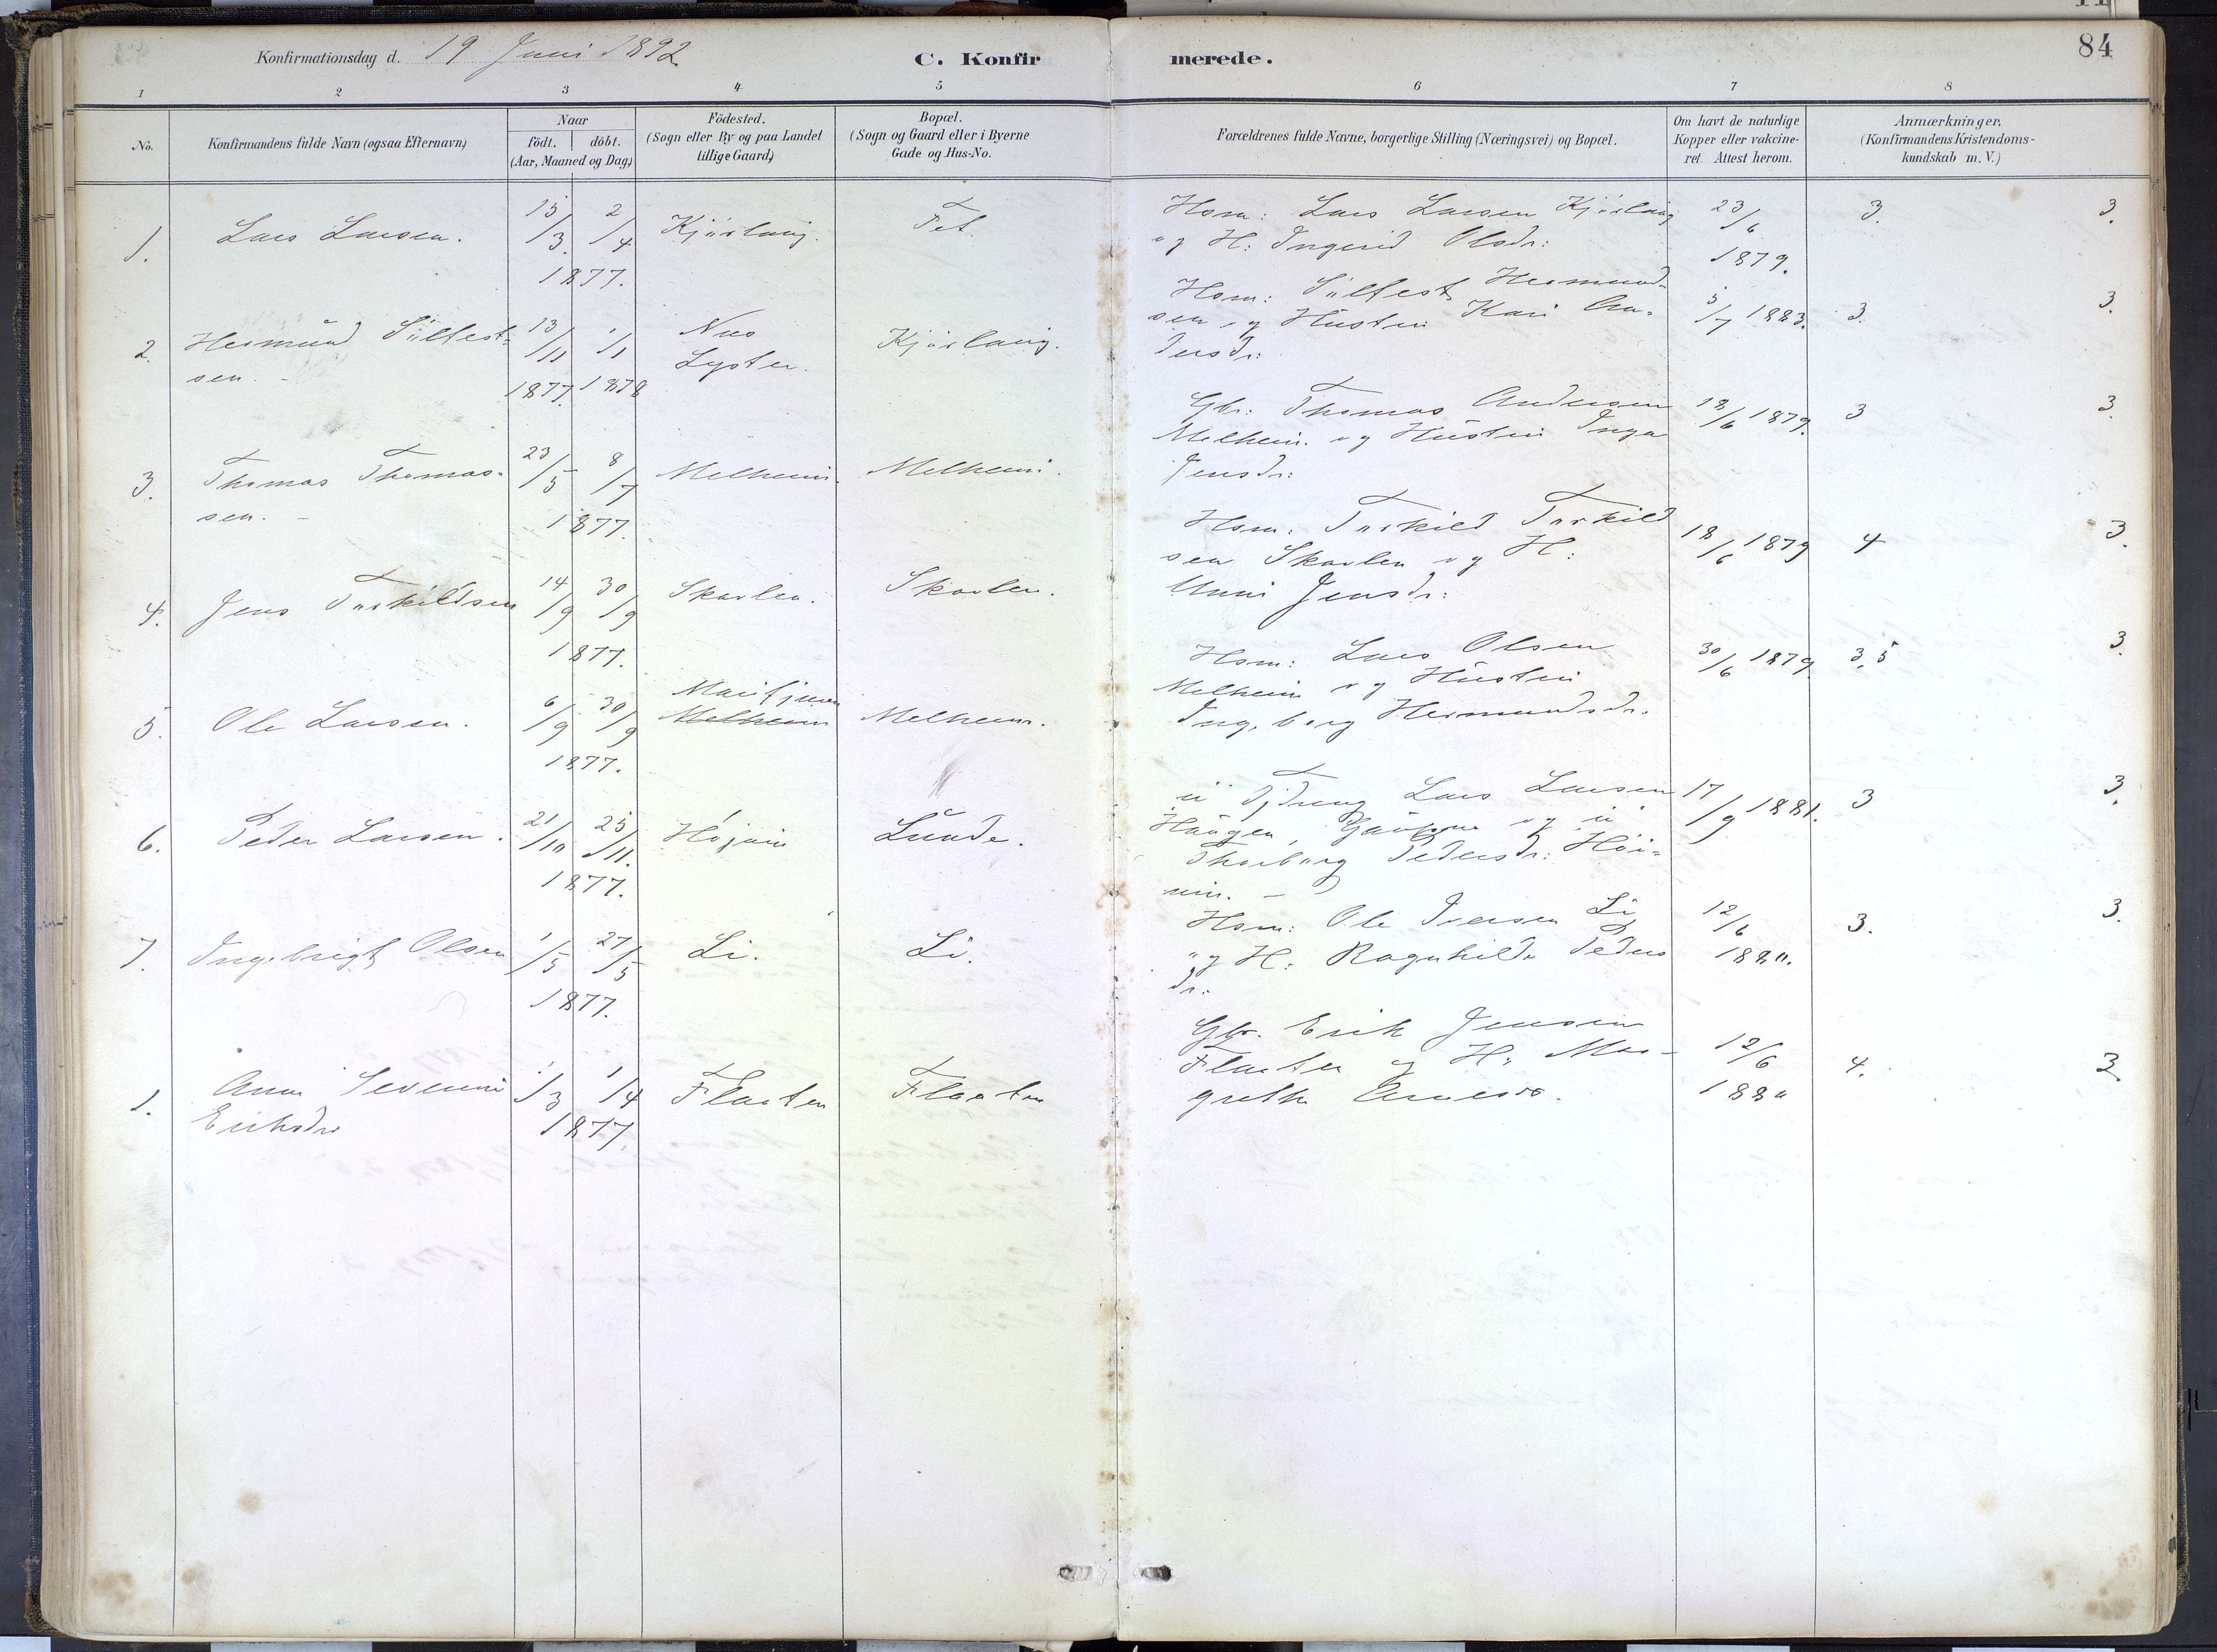 84
Konfirmationsdag d. 19 Juni 1892
C. Konfirmerede.
1 2 3 4 5 6 7 8
No.
Konfirmandens fulde Navn (ogsaa Efternavn)
Naar
födt. döbt.
(Aar, Maaned og Dag)
Födested.
(Sogn eller By og paa Landet
tillige Gaard)
Bopæl.
(Sogn og Gaard eller i Byerne
Gade og Hus-No.
Forældrenes fulde Navne, borgerlige Stilling (Næringsvei) og Bopæl.
Om havt de naturlige
Kopper eller vakcine-
ret. Attest herom.
Anmærkninger,
(Konfirmandens Kristendoms-
kundskab m. V.)
1. Lars Larsen. 15/3 2/4 1877. Fet.
Hsm: Lars Larsen
og H: Ingerid Olsdr: 23/6 1879. 3. 3.
2. Hermund Sülfest-
sen. 13/11 1/1 1877. 1878 Nes
Lyster.
Hsm: Sülfest Hermund-
sen og Hüstru Kari An-
dersdr: 5/7 1883. 3. 3.
3. Thomas Thomas-
sen. 23/5 8/7 1877. Melheim. Melheim.
Gbr: Thomas Andersen
Melheim og Hüstru Inga
Jensdr: 18/6 1879. 3 3.
4. Jens Torkildsen 14/9 30/9 1877. Skarlen. Skarlen.
Hsm: Torkild Torkild
sen Skarlen og H:
Unni Jensdr: 18/6 1879 4 3.
5. Ole Larsen. 6/9 30/9 1877. Marifjæren
Melheim Melheim.
Hsm: Lars Olsen
Melheim og Hüstru
Ingeborg Hermundsdr. 30/6 1879. 3,5 3.
6. Peder Larsen. 21/10 25/11. 1877. Lünde.
Lars Larsen
Haugen, og ü
Thorborg Pedersdr: Höi-
17/9 1881. 3 3.
7. Ingebrigt Olsen 1/5 27/5 1877. Li. Li.
Hsm: Ole Iversen Li
og H: Ragnhilde Peders
dr: 12/6 1880. 3. 3.
1. Anna Severine
Eriksdr 1/3 1/4 1877. Flaaten Flaaten
Gbr. Erik Jensen
Flaaten og H: Mar-
grethe 12/6 1880 4. 3.